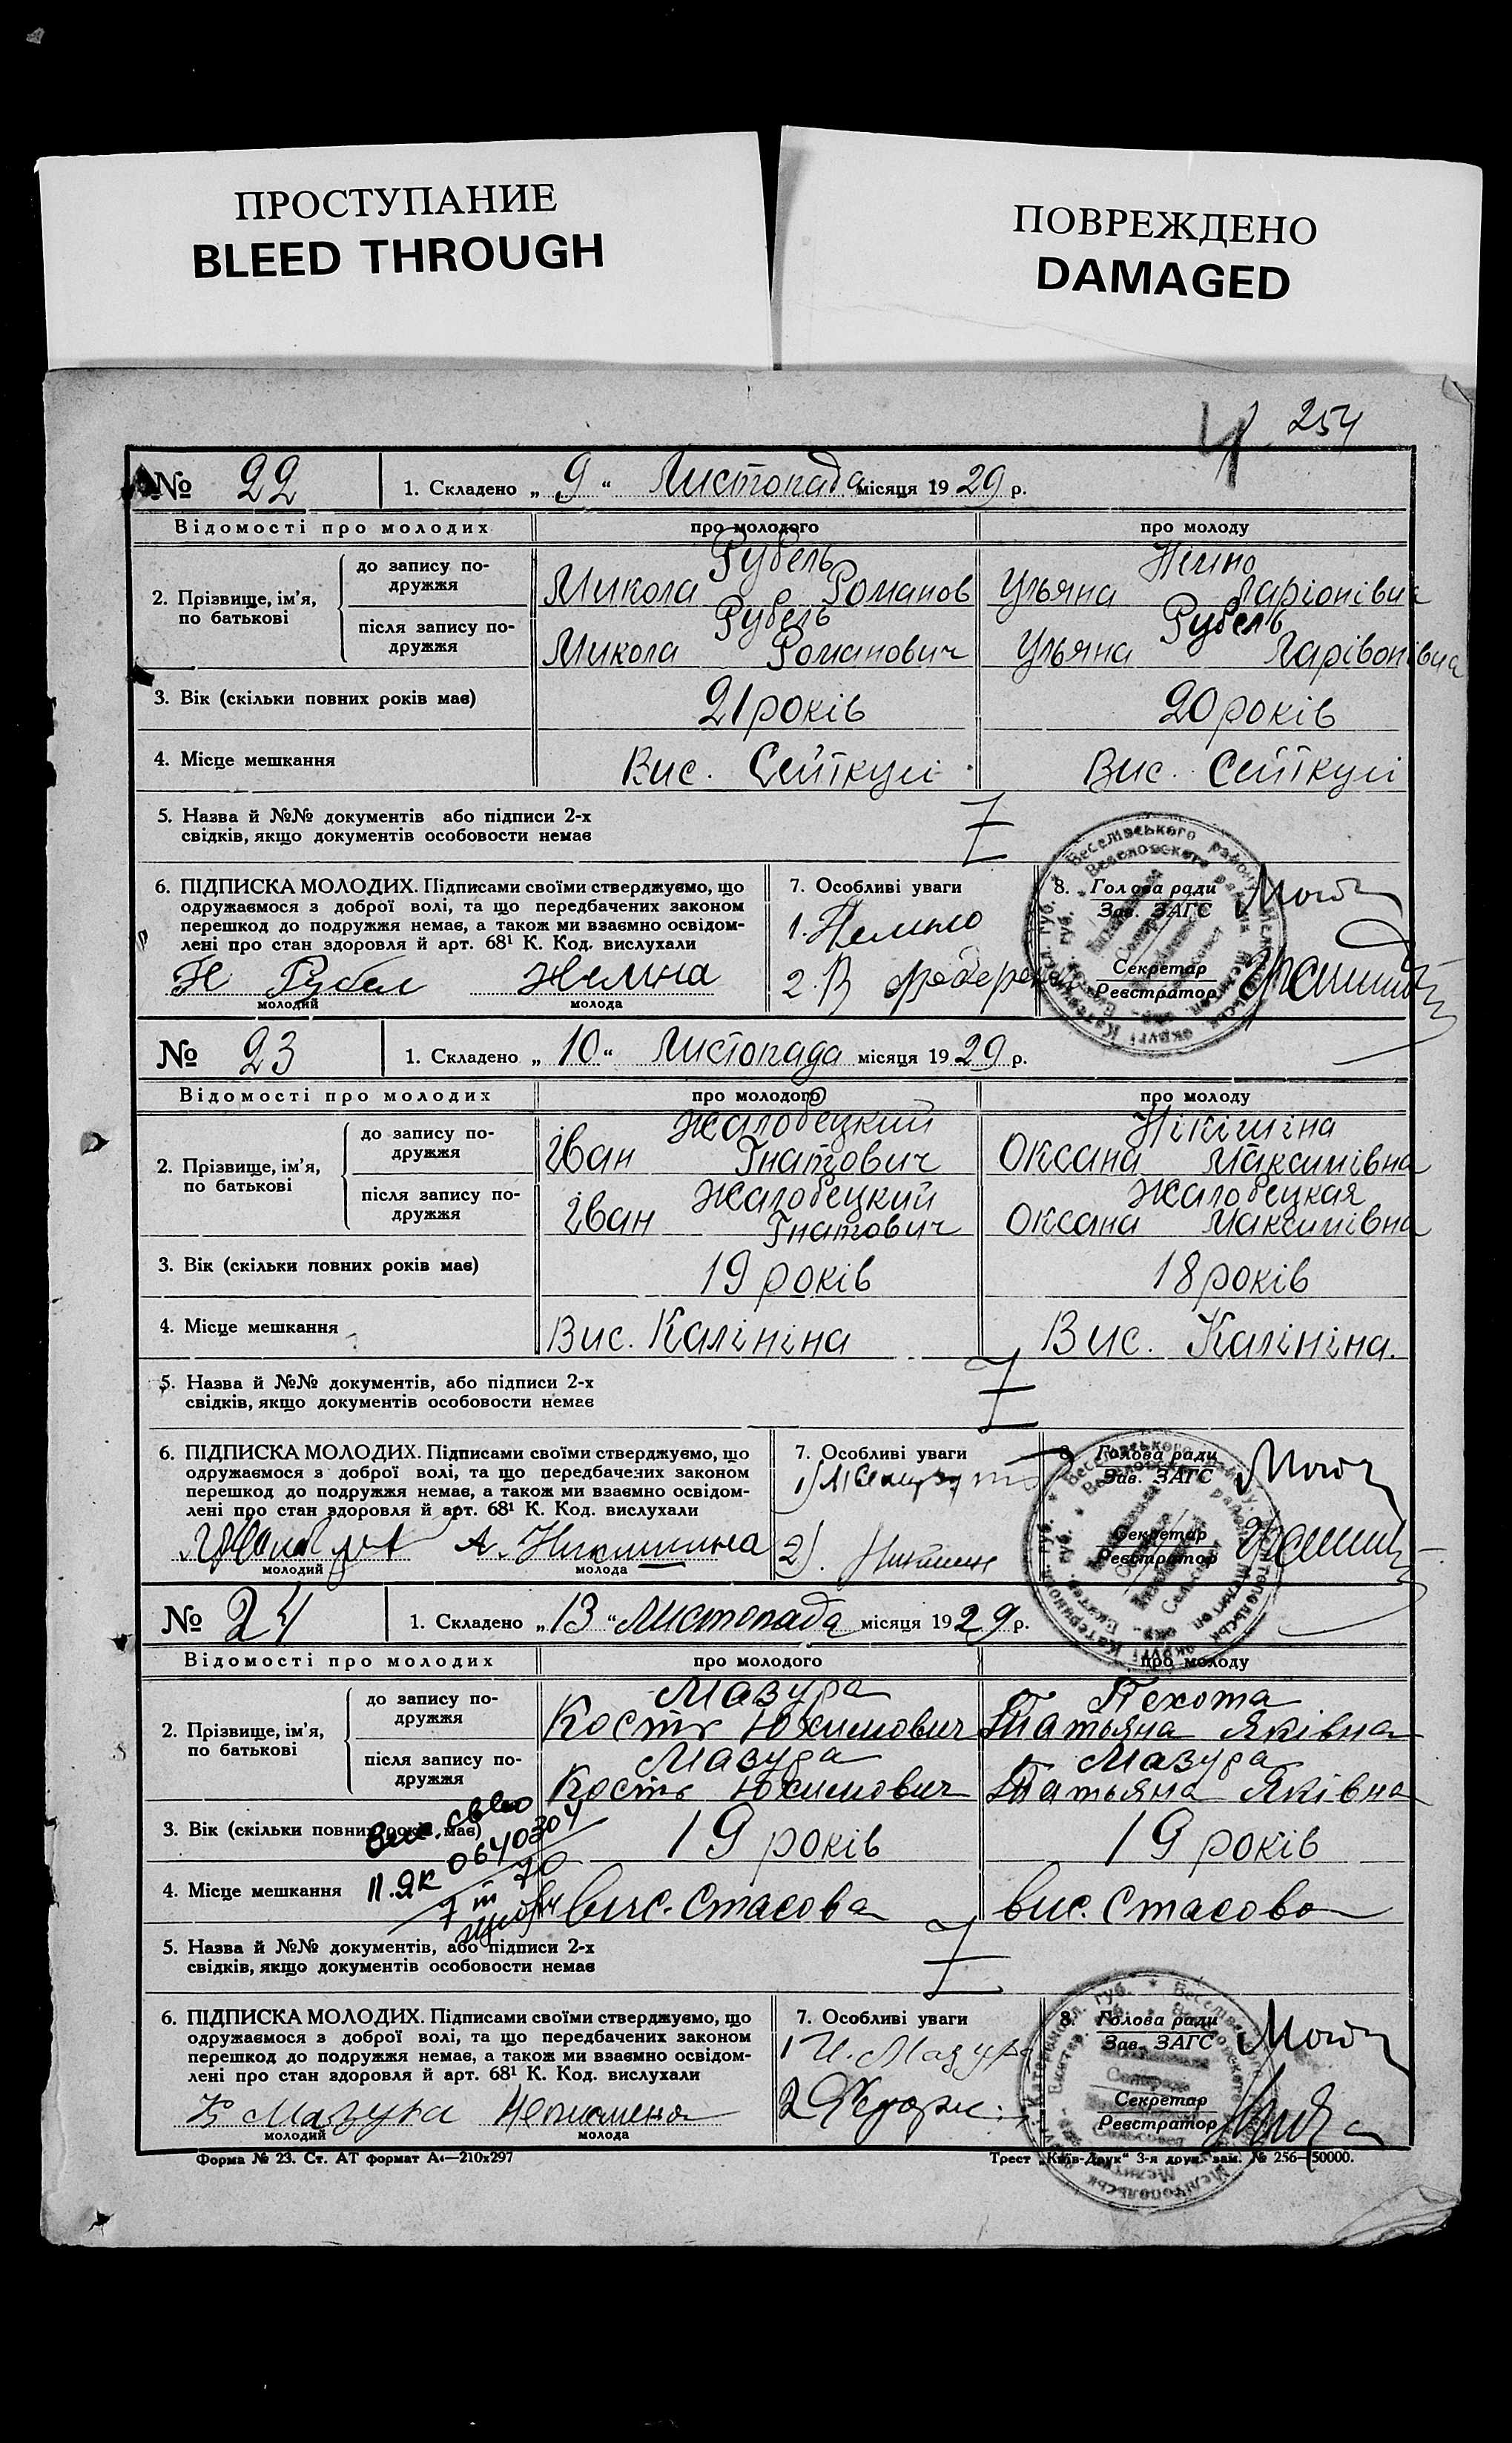 ПРОСТУПАНИЕ
BLEED THROUGH
ПОВРЕЖДЕНО
DAMAGED
254
№ 22 1. Складено „ 9 “ Листопада місяця 1929 р.
Відомості про молодих про молодого про молоду
2. Прізвище, ім’я, по батькові
до запису подружжя
Рубель
Микола Романов
Ульяна Ларіонівна
після запису по-
дружжя
Рубель Рубель
Микола Романович Ульяна Ларівонівна
3. Вік (скільки повних років має) 21 років 20 років
4. Місце мешкання Вис. Вис.
5. Назва й №№ документів або підписи 2-х
свідків, якщо документів особовости немає
6. ПІДПИСКА МОЛОДИХ. Підписами своїми стверджуємо, що
одружаємося з доброї волі, та що передбачених законом
перешкод до подружжя немає, а також ми взаємно освідом-
лені про стан здоровля й арт. 68¹ К. Код. вислухали
Рубель
молодий молода
7. Особливі уваги
1.
2. В
8. Голова ради
Зав. ЗАГС
Секретар
Реєстратор
№ 23 1. Складено „ 10 “ Листопада місяця 1929 р.
Відомості про молодих про молодого про молоду
2. Прізвище, ім’я,
по батькові
до запису по-
дружжя
Жалобецкий Нікішіна
Іван Гнатович Оксана Максимівна
після запису по-
дружжя
Жалобецкий Жалобецкая
Іван Гнатович Оксана Максимівна
3. Вік (скільки повних років має) 19 років 18 років
4. Місце мешкання Вис. Калініна Вис. Калініна.
5. Назва й №№ документів, або підписи 2-х
свідків, якщо документів особовости немає
6. ПІДПИСКА МОЛОДИХ. Підписами своїми стверджуємо, що
одружаємося з доброї волі, та що передбачених законом
перешкод до подружжя немає, а також ми взаємно освідом-
лені про стан здоровля й арт. 68¹ К. Код. вислухали
А. Никишина
молодий молода
7. Особливі уваги
1)
2).
8. Голова ради
Зав. ЗАГС
Секретар
Реєстратор
№ 24 1. Складено „ 13 “ Листопада місяця 1929 р.
Відомості про молодих про молодого про молоду
2. Прізвище, ім’я,
по батькові
до запису по-
дружжя
Мазура Пехота
Кость Юхимович Татьяна Яківна
після запису по-
дружжя
Мазура Мазура
Кость Юхимович Татьяна Яківна
3. Вік (скільки повних років має) 19 років 19 років
II. ЯК 0640304
4. Місце мешкання вис. Стасова вис. Стасова
5. Назва й №№ документів, або підписи 2-х
свідків, якщо документів особовости немає
6. ПІДПИСКА МОЛОДИХ. Підписами своїми стверджуємо, що
одружаємося з доброї волі, та що передбачених законом
перешкод до подружжя немає, а також ми взаємно освідом-
лені про стан здоровля й арт. 68¹ К. Код. вислухали
К Мазура
молодий молода
7. Особливі уваги
1 И. Мазура
2
8. Голова ради
Зав. ЗАГС
Секретар
Реєстратор
Форма № 23. Ст. АТ формат А₄—210x297
Трест „Київ-Друк“ 3-я друк. зам. № 256—50000.